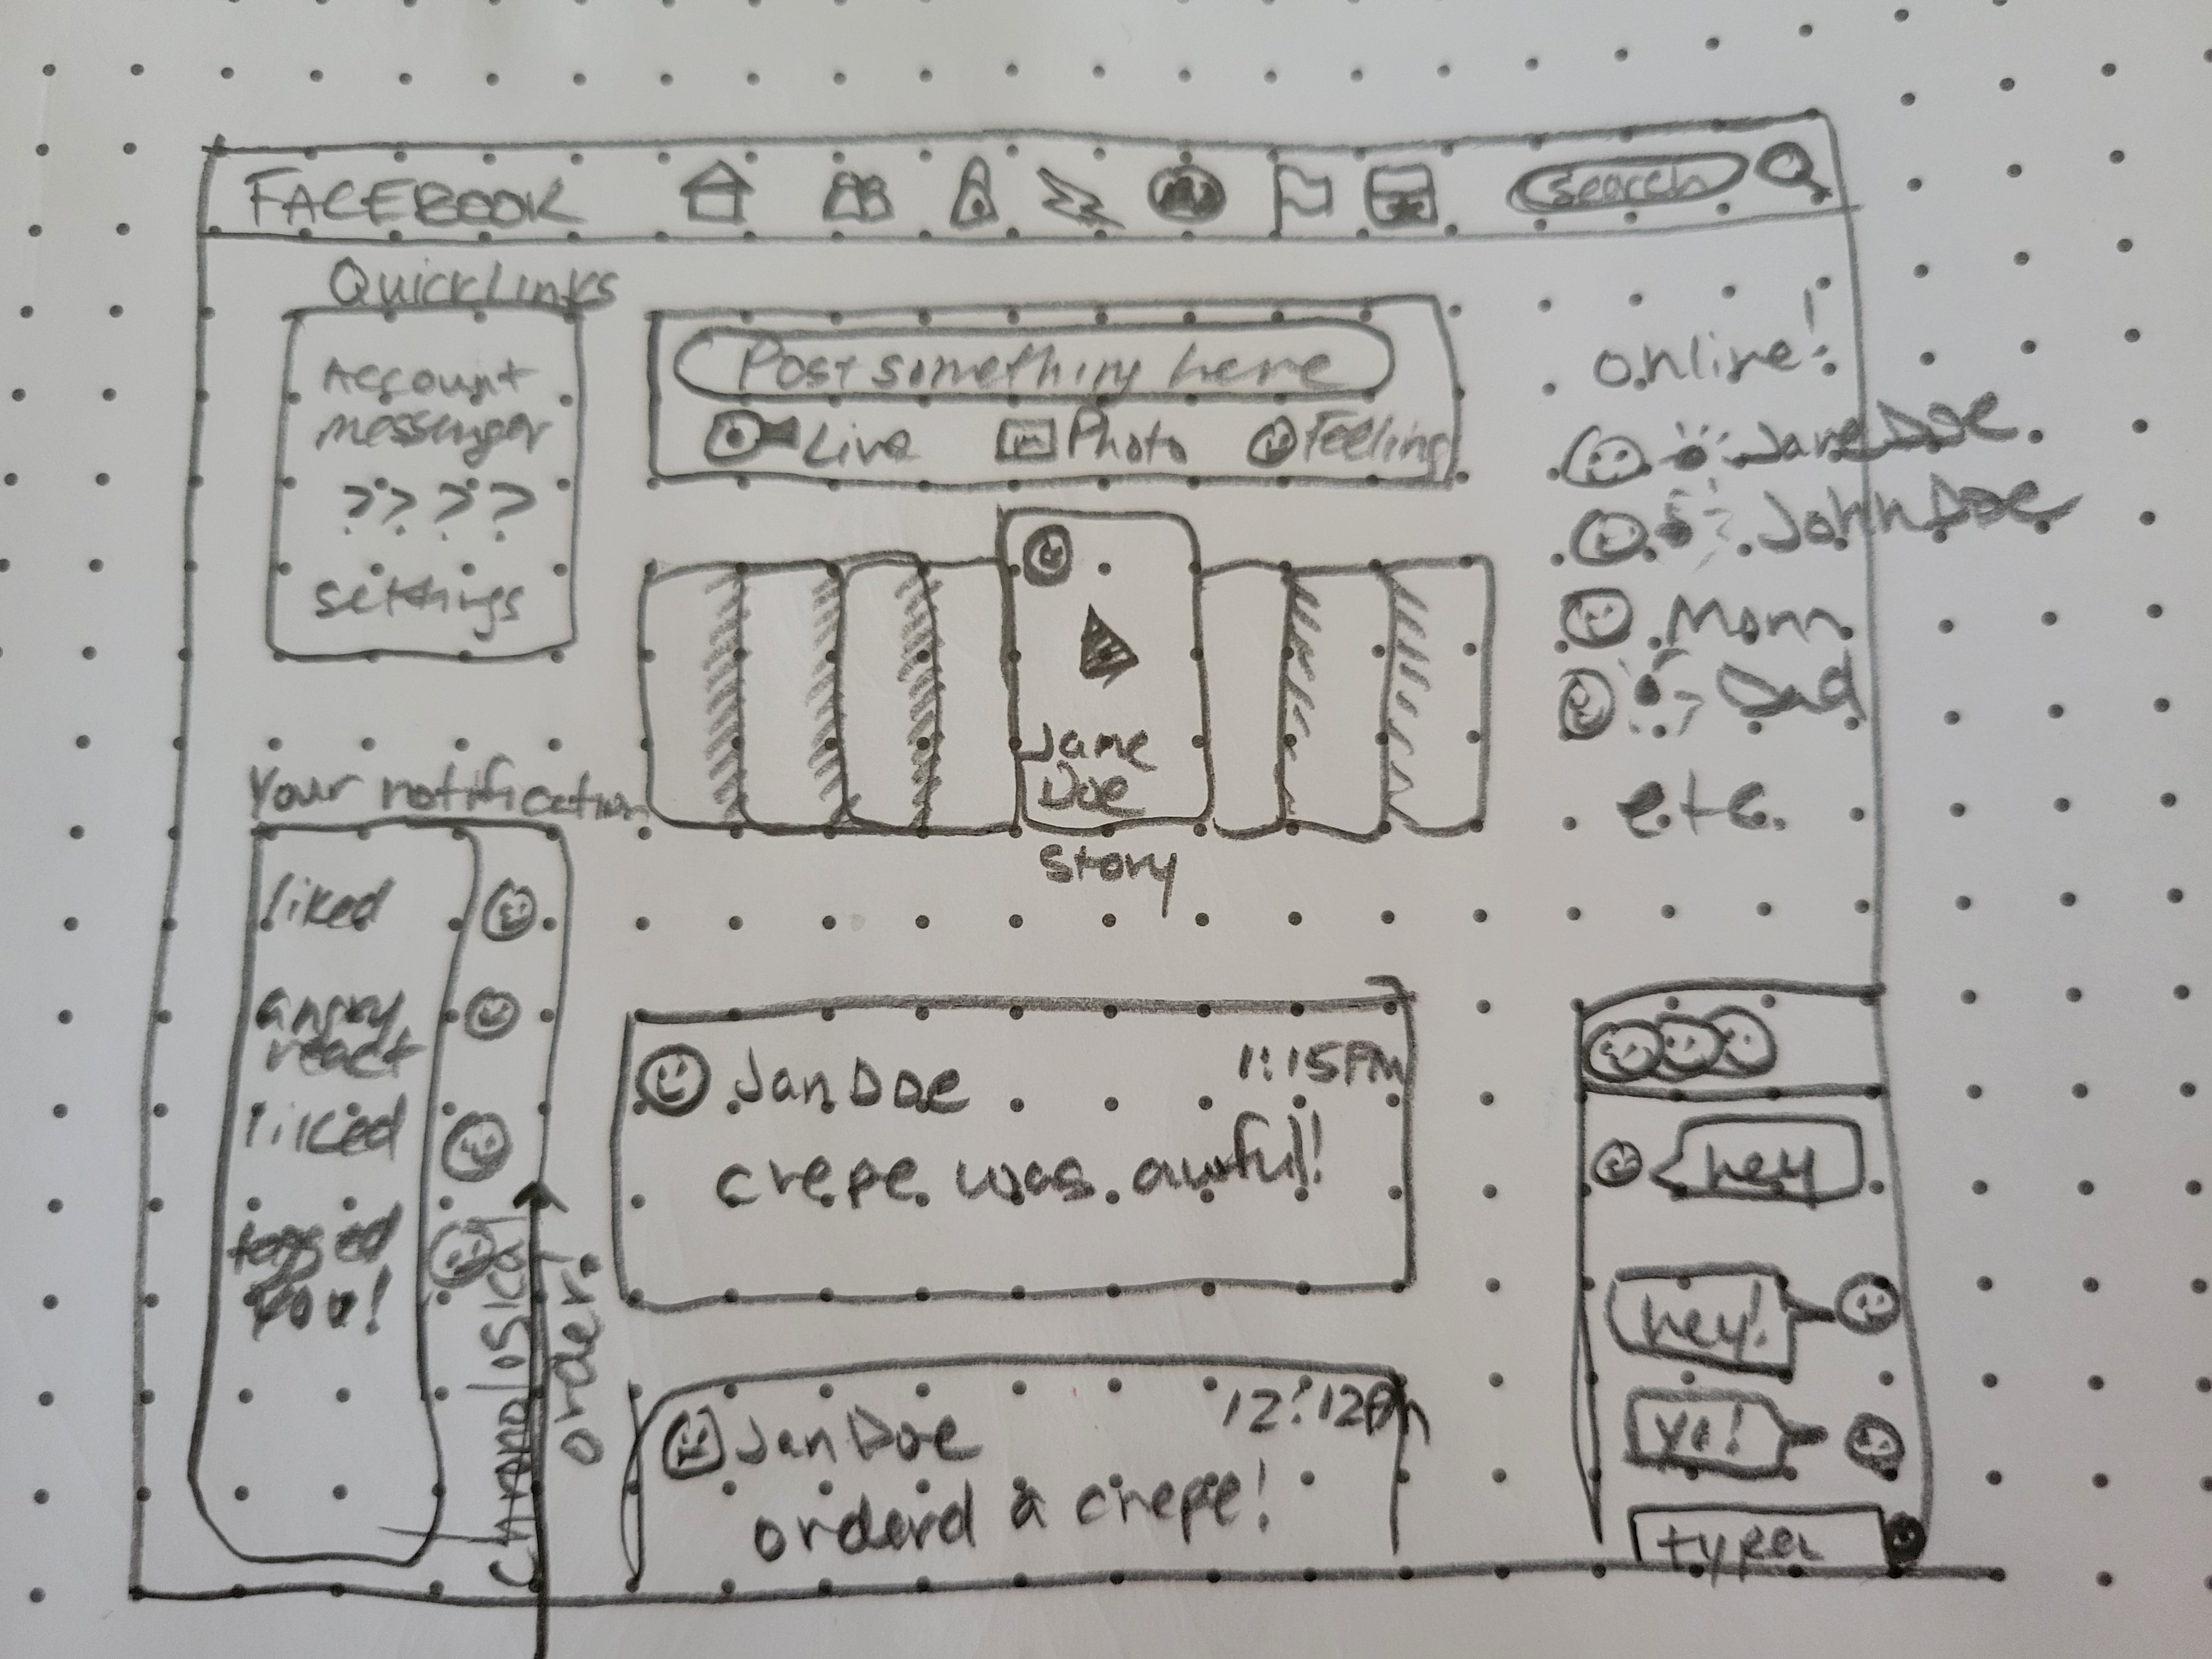 FACEBOOK
search
QuickLinks
Account
messenger
????
settings
Post something here
Live Photo Feeling
online!
Jane Doe
John Doe
Mom
Dad
etc.
Jane
Doe
Story
Your notification
liked
angry
react
liked
tagged
you!
chronological
order!
Jan Doe 1:15PM
crepe was awful!
Jan Doe 12:12Pm
orderd a crepe!
hey
hey!
yo!